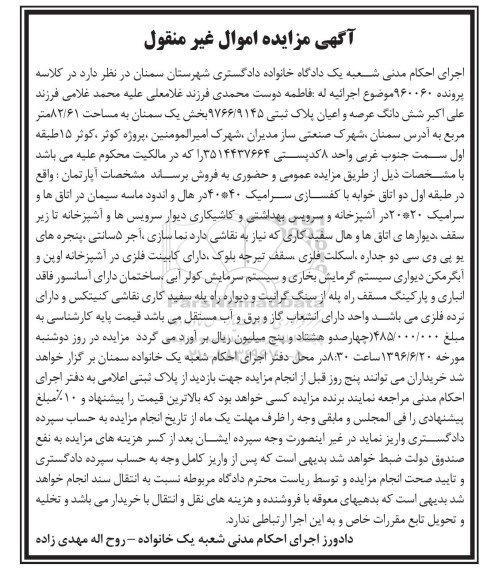 آگهی مزایده اموال غیر منقول
اجرای احکام مدنی شعبه یک دادگاه خانواده دادگستری شهرستان سمنان در نظر دارد در کلاسه
پرونده ۹۶۰۰۶۰موضوع اجرائیه له :فاطمه دوست محمدی فرزند غلامعلی علیه محمد غلامی فرزند
علی اکبر شش دانگ عرصه و اعیان پلاک ثبتی ۹۷۶۶/۹۱۴۵بخش یک سمنان به مساحت ۸۲/۶۱متر
مربع به آدرس سمنان ،شهرک صنعتی ساز مدیران ،شهرک امیرالمومنین ،پروژه کوثر ،کوثر ۱۵طبقه
اول سمت جنوب غربی واحد ۸کدپستی ۳۵۱۴۴۳۷۶۶۴را که در مالکیت محکوم علیه می باشد
با مشخصات ذیل از طریق مزایده عمومی و حضوری به فروش برساند مشخصات آپارتمان : واقع
در طبقه اول دو اتاق خوابه با کفسازی سرامیک ۴۰*۴۰در هال و اندود ماسه سیمان در اتاق ها و
سرامیک ۲۰*۲۰در آشپزخانه و سرویس بهداشتی و کاشیکاری دیوار سرویس ها و آشپزخانه تا زیر
سقف ،دیوارها ی اتاق ها و هال سفید کاری که نیاز به نقاشی دارد نما سازی ،آجر ۵سانتی ،پنجره های
یو پی وی سی دو جداره ،اسکلت فلزی ،سقف تیرچه بلوک ،دارای کابینت فلزی در آشپزخانه اوپن و
آبگرمکن دیواری سیستم گرمایش بخاری و سیستم سرمایش کولر آبی ساختمان دارای آسانسور فاقد
انباری و پارکینگ مسقف راه پله از سنگ گرانیت و دیواره راه پله سفید کاری نقاشی کنیتکس و دارای
نرده فلزی می باشد واحد دارای انشعاب گاز و برق و آب مستقل می باشد قیمت پایه کارشناسی به
مبلغ ۴۸۵/۰۰۰/۰۰۰(چهارصدو هشتاد و پنج میلیون ریال بر آورد می گردد مزایده در روز دوشنبه
مورخه ۱۳۹۶/۶/۲۰ساعت ۸:۳۰در محل دفتر اجرای احکام شعبه یک خانواده سمنان بر گزار خواهد
شد خریداران می توانند پنج روز قبل از انجام مزایده جهت بازدید از پلاک ثبتی اعلامی به دفتر اجرای
احکام مدنی مراجعه نمایند برنده مزایده کسی خواهد بود که بالاترین قیمت را پیشنهاد و ۱۰٪مبلغ
پیشنهادی را فی المجلس و مابقی وجه را ظرف مهلت یک ماه از تاریخ انجام مزایده به حساب سپرده
دادگستری واریز نماید در غیر اینصورت وجه سپرده ایشان بعد از کسر هزینه های مزایده به نفع
صندوق دولت ضبط خواهد شد بدیهی است که پس از واریز کامل وجه به حساب سپرده دادگستری
و تایید صحت انجام مزایده و توسط ریاست محترم دادگاه مربوطه نسبت به انتقال سند انجام خواهد
شد بدیهی است که بدهیهای معوقه با فروشنده و هزینه های نقل و انتقال با خریدار می باشد و تخلیه
و تحویل تابع مقررات خاص و به این اجرا ارتباطی ندارد.
دادورز اجرای احکام مدنی شعبه یک خانواده – روح اله مهدی زاده